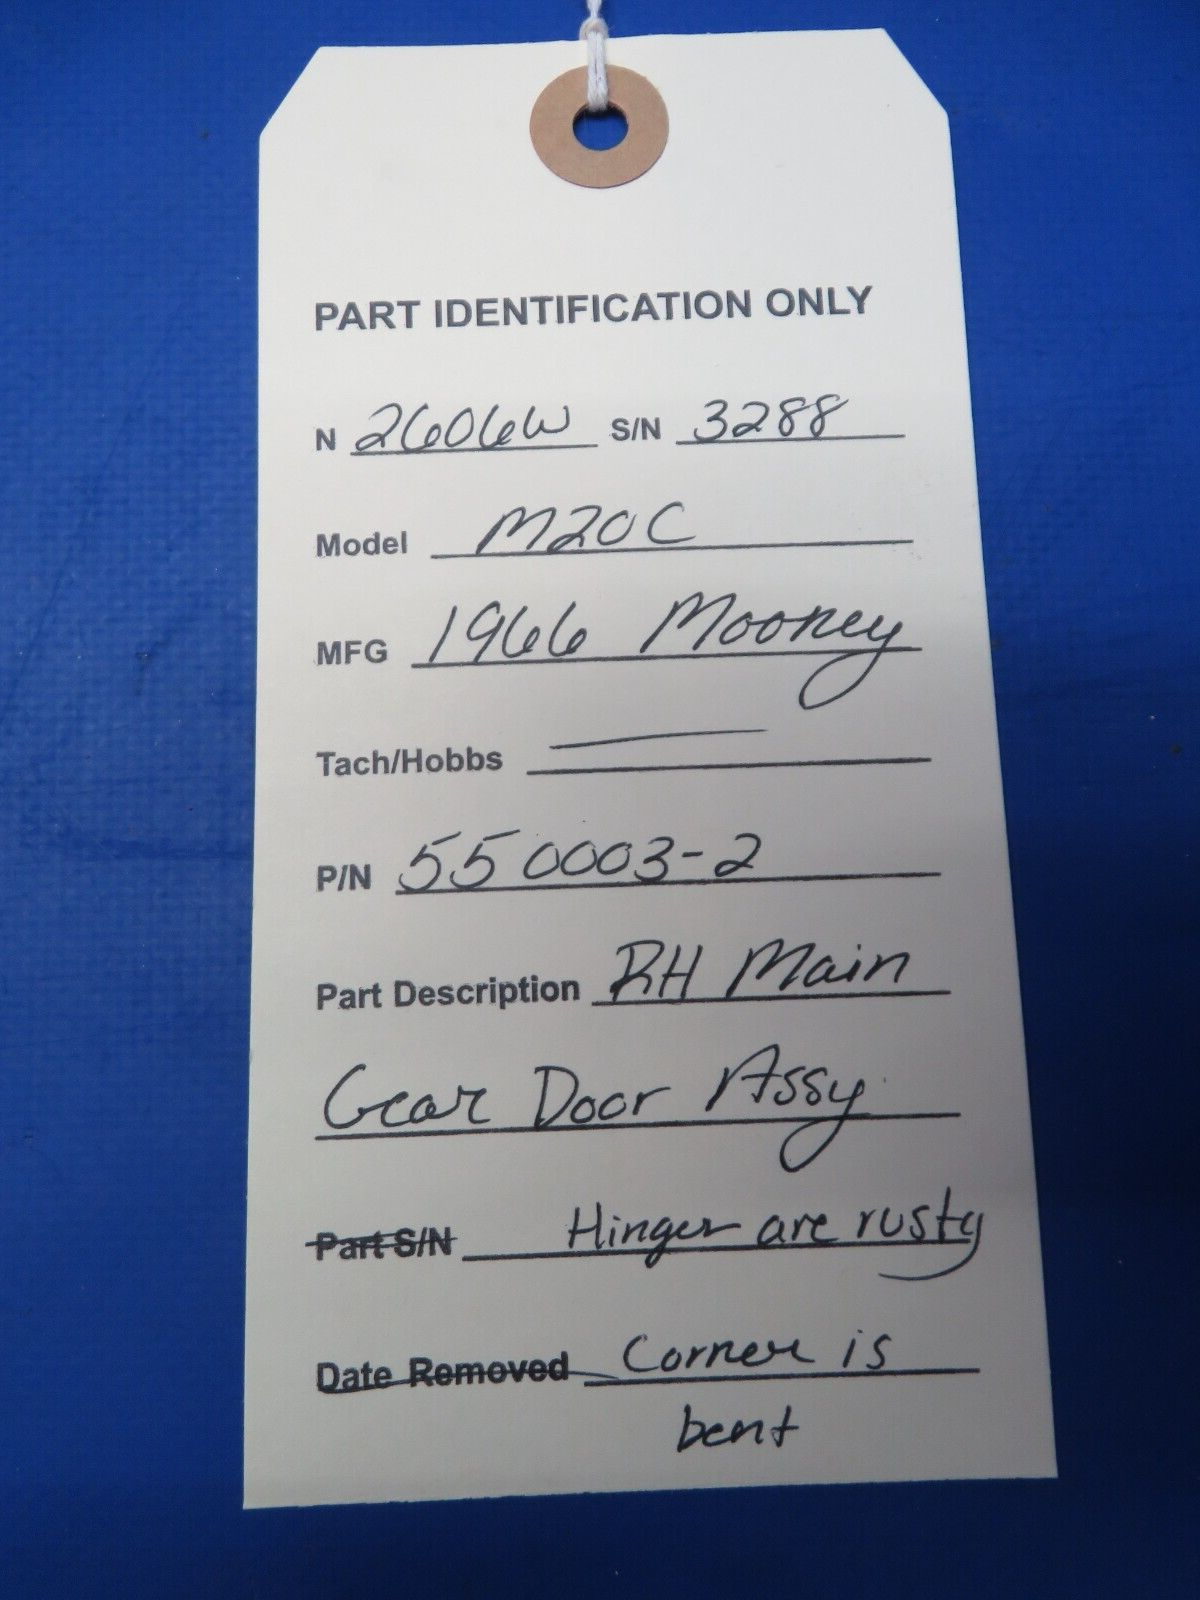 PART IDENTIFICATION ONLY
N 2606W S/N 3288
Model M20C
MFG 1966 Mooney
Tach/Hobbs —
P/N 550003-2
Part Description RH Main
Gear Door Assy.
Part S/N Hinges are rusty
Date Removed Corner is
bent